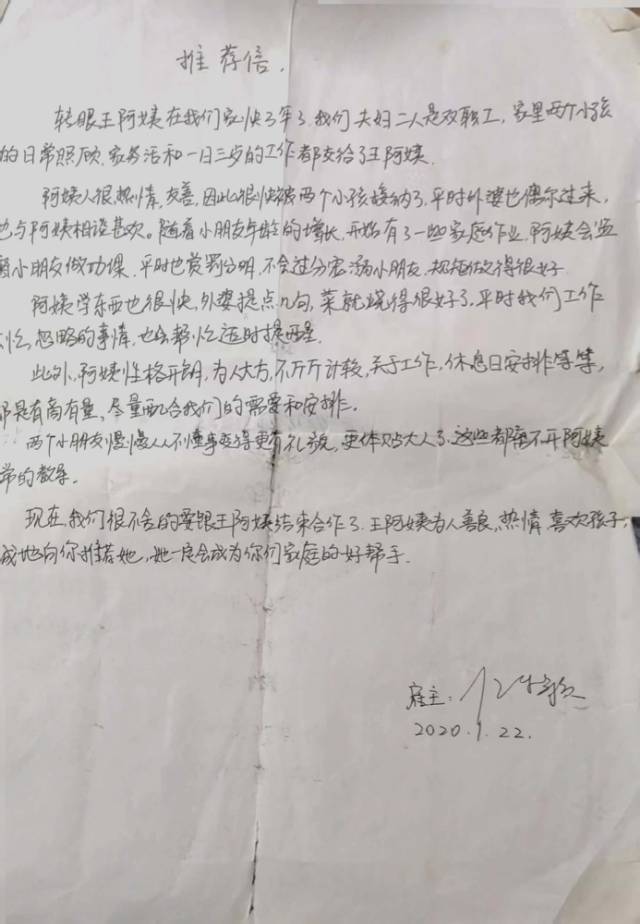 推荐信.
转眼王阿姨在我们家快3年了.我们夫妇二人是双职工,家里两个小孩
的日常照顾.家务活和一日三餐的工作都交给了王阿姨.
阿姨人很热情,友善,因此很快被两个小孩接纳了.平时外婆也偶尔过来,
也与阿姨相谈甚欢。随着小朋友年龄的增长,开始有了一些家庭作业,阿姨会监
小朋友做功课,平时也赏罚分明,不会过分宠溺小朋友,规矩做得很好.
阿姨学东西也很快,外婆提点几句,菜就烧得很好了,平时我们工作
忙,忽略的事情,也会帮忙适时提醒.
此外,阿姨性格开朗,为人大方,不斤斤计较,关于工作,休息日安排等等,
都是有商有量,尽量配合我们的需要和安排.
两个小朋友慢慢从不懂事变得更有礼貌,更体贴大人了.这些都离不开阿姨
常的教导.
现在,我们很不舍的要跟王阿姨结束合作了.王阿姨为人善良,热情,喜欢孩子,
诚地向你推荐她,她一定会成为你们家庭的好帮手.
雇主:
2020.1.22.